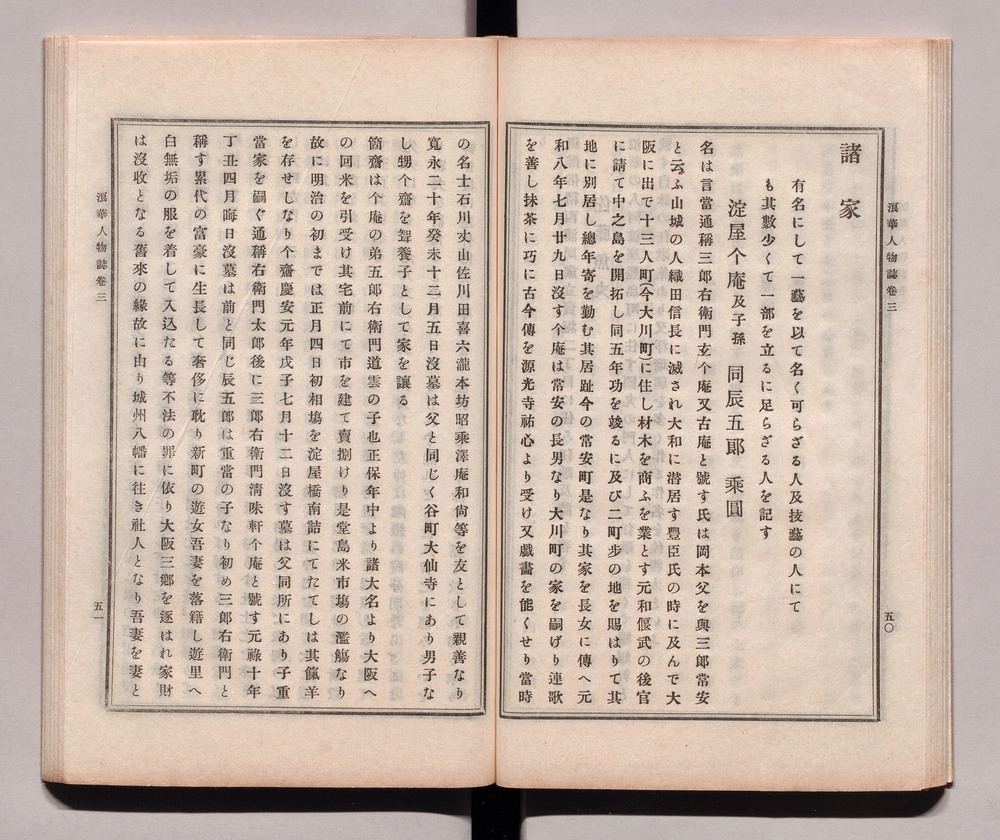 浪華人物誌卷三
五〇
諸家
有名にして一藝を以て名く可らざる人及技藝の人にて
も其數少くて一部を立るに足らざる人を記す
淀屋个庵及子孫 同辰五郎 乘圓
名は言當通稱三郎右衛門玄个庵又古庵と號す氏は岡本父を與三郎常安
と云ふ山城の人織田信長に滅され大和に潜居す豊臣氏の時に及んで大
阪に出で十三人町(今大川町)に住し材木を商ふを業とす元和偃武の後官
に請て中之島を開拓し同五年功を竣るに及び二町步の地を賜はりて其
地に別居し總年寄を勤む其居趾今の常安町是なり其家を長女に傳へ元
和八年七月廿九日沒す个庵は常安の長男なり大川町の家を嗣げり連歌
を善し抹茶に巧に古今傳を源光寺祐心より受け又戯畵を能くせり當時
の名士石川丈山佐川田喜六瀧本坊昭乘澤庵和尙等を友として親善なり
寬永二十年癸未十二月五日沒墓は父と同じく谷町大仙寺にあり男子な
し甥个齋を聟養子として家を讓る
箇齋は个庵の弟五郎右衛門道雲の子也正保年中より諸大名より大阪へ
の回米を引受け其宅前にて市を建て賣捌けり是堂島米市塲の濫觴なり
故に明治の初までは正月四日初相塲を淀屋橋南詰にてたてしは其餼羊
を存せしなり个齋慶安元年戊子七月十二日沒す墓は父同所にあり子重
當家を嗣ぐ通稱右衛門太郎後に三郎右衛門淸味軒个庵と號す元祿十年
丁丑四月晦日沒墓は前と同じ辰五郎は重當の子なり初め三郎右衛門と
稱す累代の富豪に生長して奢侈に耽り新町の遊女吾妻を落籍し遊里へ
白無垢の服を着して入込たる等不法の罪に依り大阪三鄕を逐はれ家財
は沒收となる舊來の緣故に由り城州八幡に往き社人となり吾妻を妻と
浪華人物誌卷三
五一